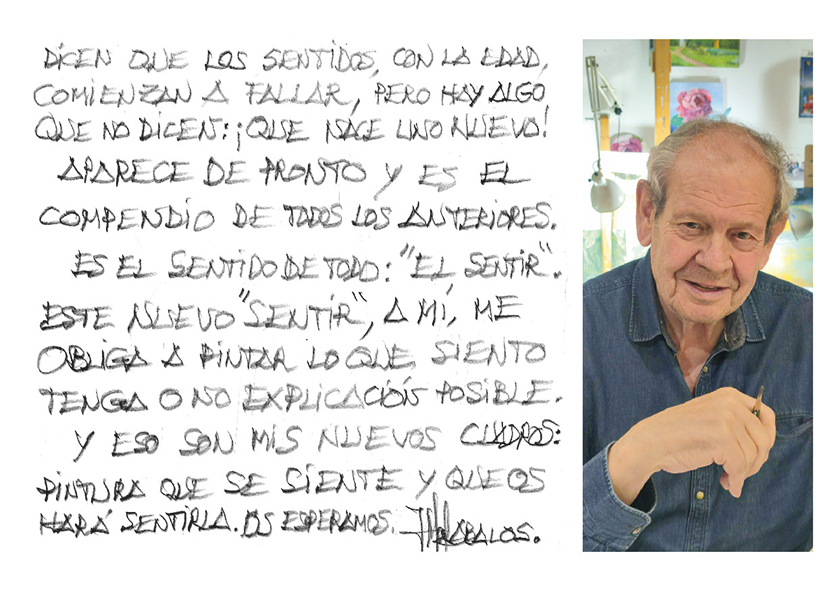 DICEN QUE LOS SENTIDOS, CON LA EDAD,
COMIENZAN A FALLAR, PERO HAY ALGO
QUE NO DICEN: ¡QUE NACE UNO NUEVO!
APARECE DE PRONTO Y ES EL
COMPENDIO DE TODOS LOS ANTERIORES.
ES EL SENTIDO DE TODO: "EL SENTIR".
ESTE NUEVO "SENTIR", A MÍ, ME
OBLIGA A PINTAR LO QUE SIENTO
TENGA O NO EXPLICACIÓN POSIBLE.
Y ESO SON MIS NUEVOS CUADROS:
PINTURA QUE SE SIENTE Y QUE OS
HARÁ SENTIRLA. OS ESPERAMOS.